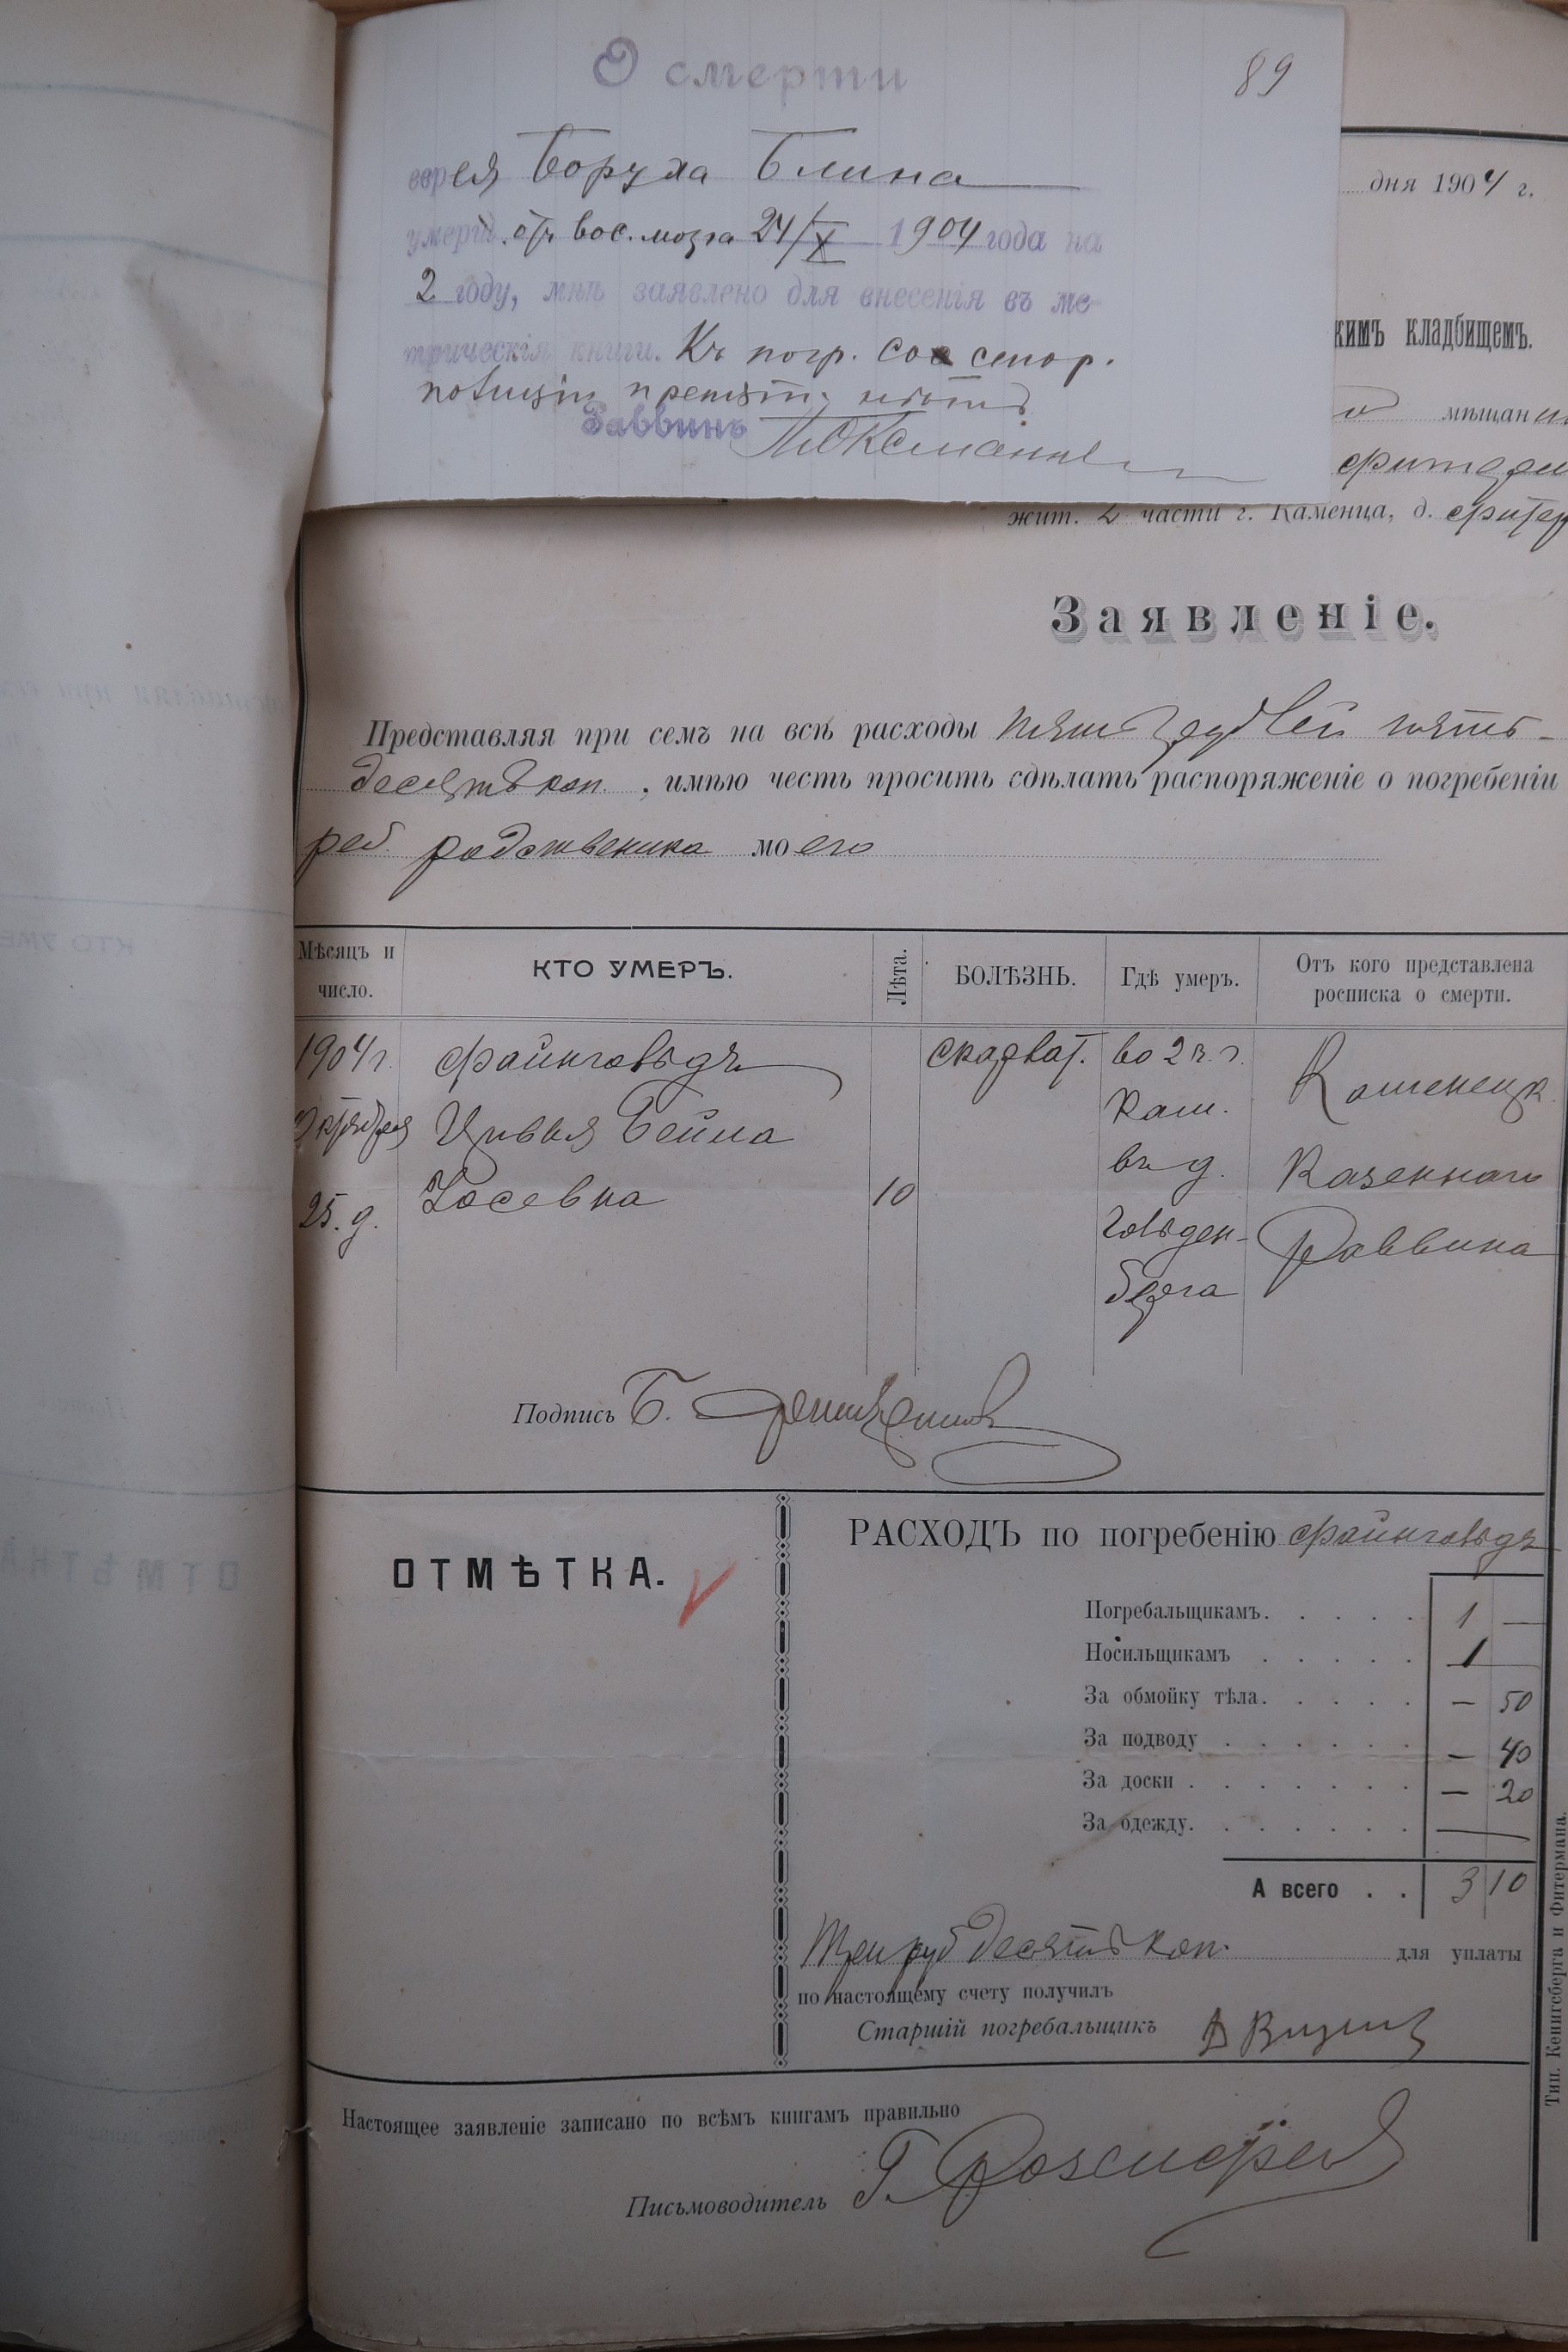 О смерти
89
еврея Боруха Блина
умерш. отъ вос. мозга 24/X 1904 года на
2 году, мнѣ заявлено для внесенія въ ме-
трическія книги. Къ погр. со стор.
полиціи препятст. нѣтъ
Раввинъ
дня 1904 г.
кимъ кладбищемъ.
мѣщан
жит. 2 части г. Каменца, д.
Заявленіе.
Представляя при семъ на всѣ расходы пять рублей пять-
десятъ коп. , имѣю честь просить сдѣлать распоряженіе о погребеніи
реб. родственика моего
Мѣсяцъ и число.
КТО УМЕРЪ.
Лѣта.
БОЛѢЗНЬ.
Гдѣ умеръ.
Отъ кого представлена росписка о смерти.
1904 г. Файнгольдъ во 2 ч. г. Каменецк.
Октября Цивья Бейла Кам. Казеннаго
25. д. Іосевна 10 въ д. Раввина
Гольден-
берга
Подпись Б.
ОТМѢТКА.
РАСХОДЪ по погребенію Файнгольдъ
Погребальщикамъ. . . . . 1 —
Носильщикамъ . . . . . 1 —
За обмойку тѣла. . . . . — 50
За подводу . . . . . . — 40
За доски . . . . . . . — 20
За одежду. . . . . . . —
А всего . . 3 10
Три руб десять коп. для уплаты
по настоящему счету получилъ
Старшій погребальщикъ
Настоящее заявленіе записано по всѣмъ книгамъ правильно
Письмоводитель Г.
Тип. Кенигсберга и Фитермана.